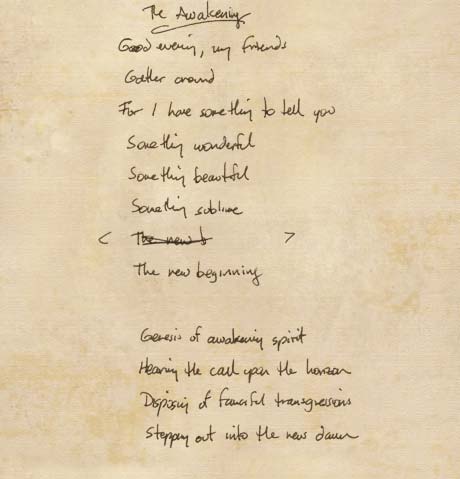 The Awakening
Good evening, my friends
Gather around
For I have something to tell you
Something wonderful
Something beautiful
Something sublime
< The new b >
The new beginning
Genesis of awakening spirit
Hearing the call upon the horizon
Disposing of fanciful transgressions
Stepping out into the new dawn